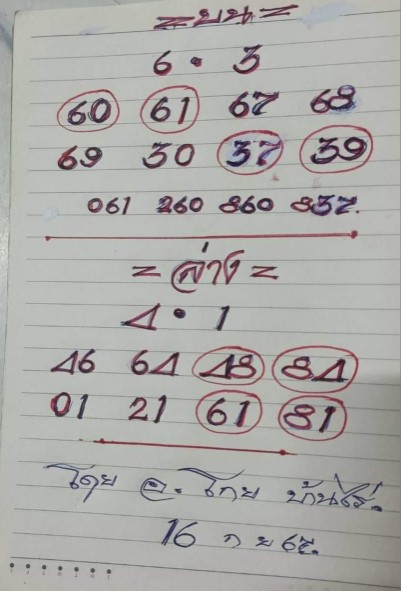 = บน =
6 • 3
60 61 67 68
69 30 37 39
061 260 860 837.
= ล่าง =
4 • 1
46 64 48 84
01 21 61 81
โดย อ. โกย บ้านไร่.
16 ก ย 65.